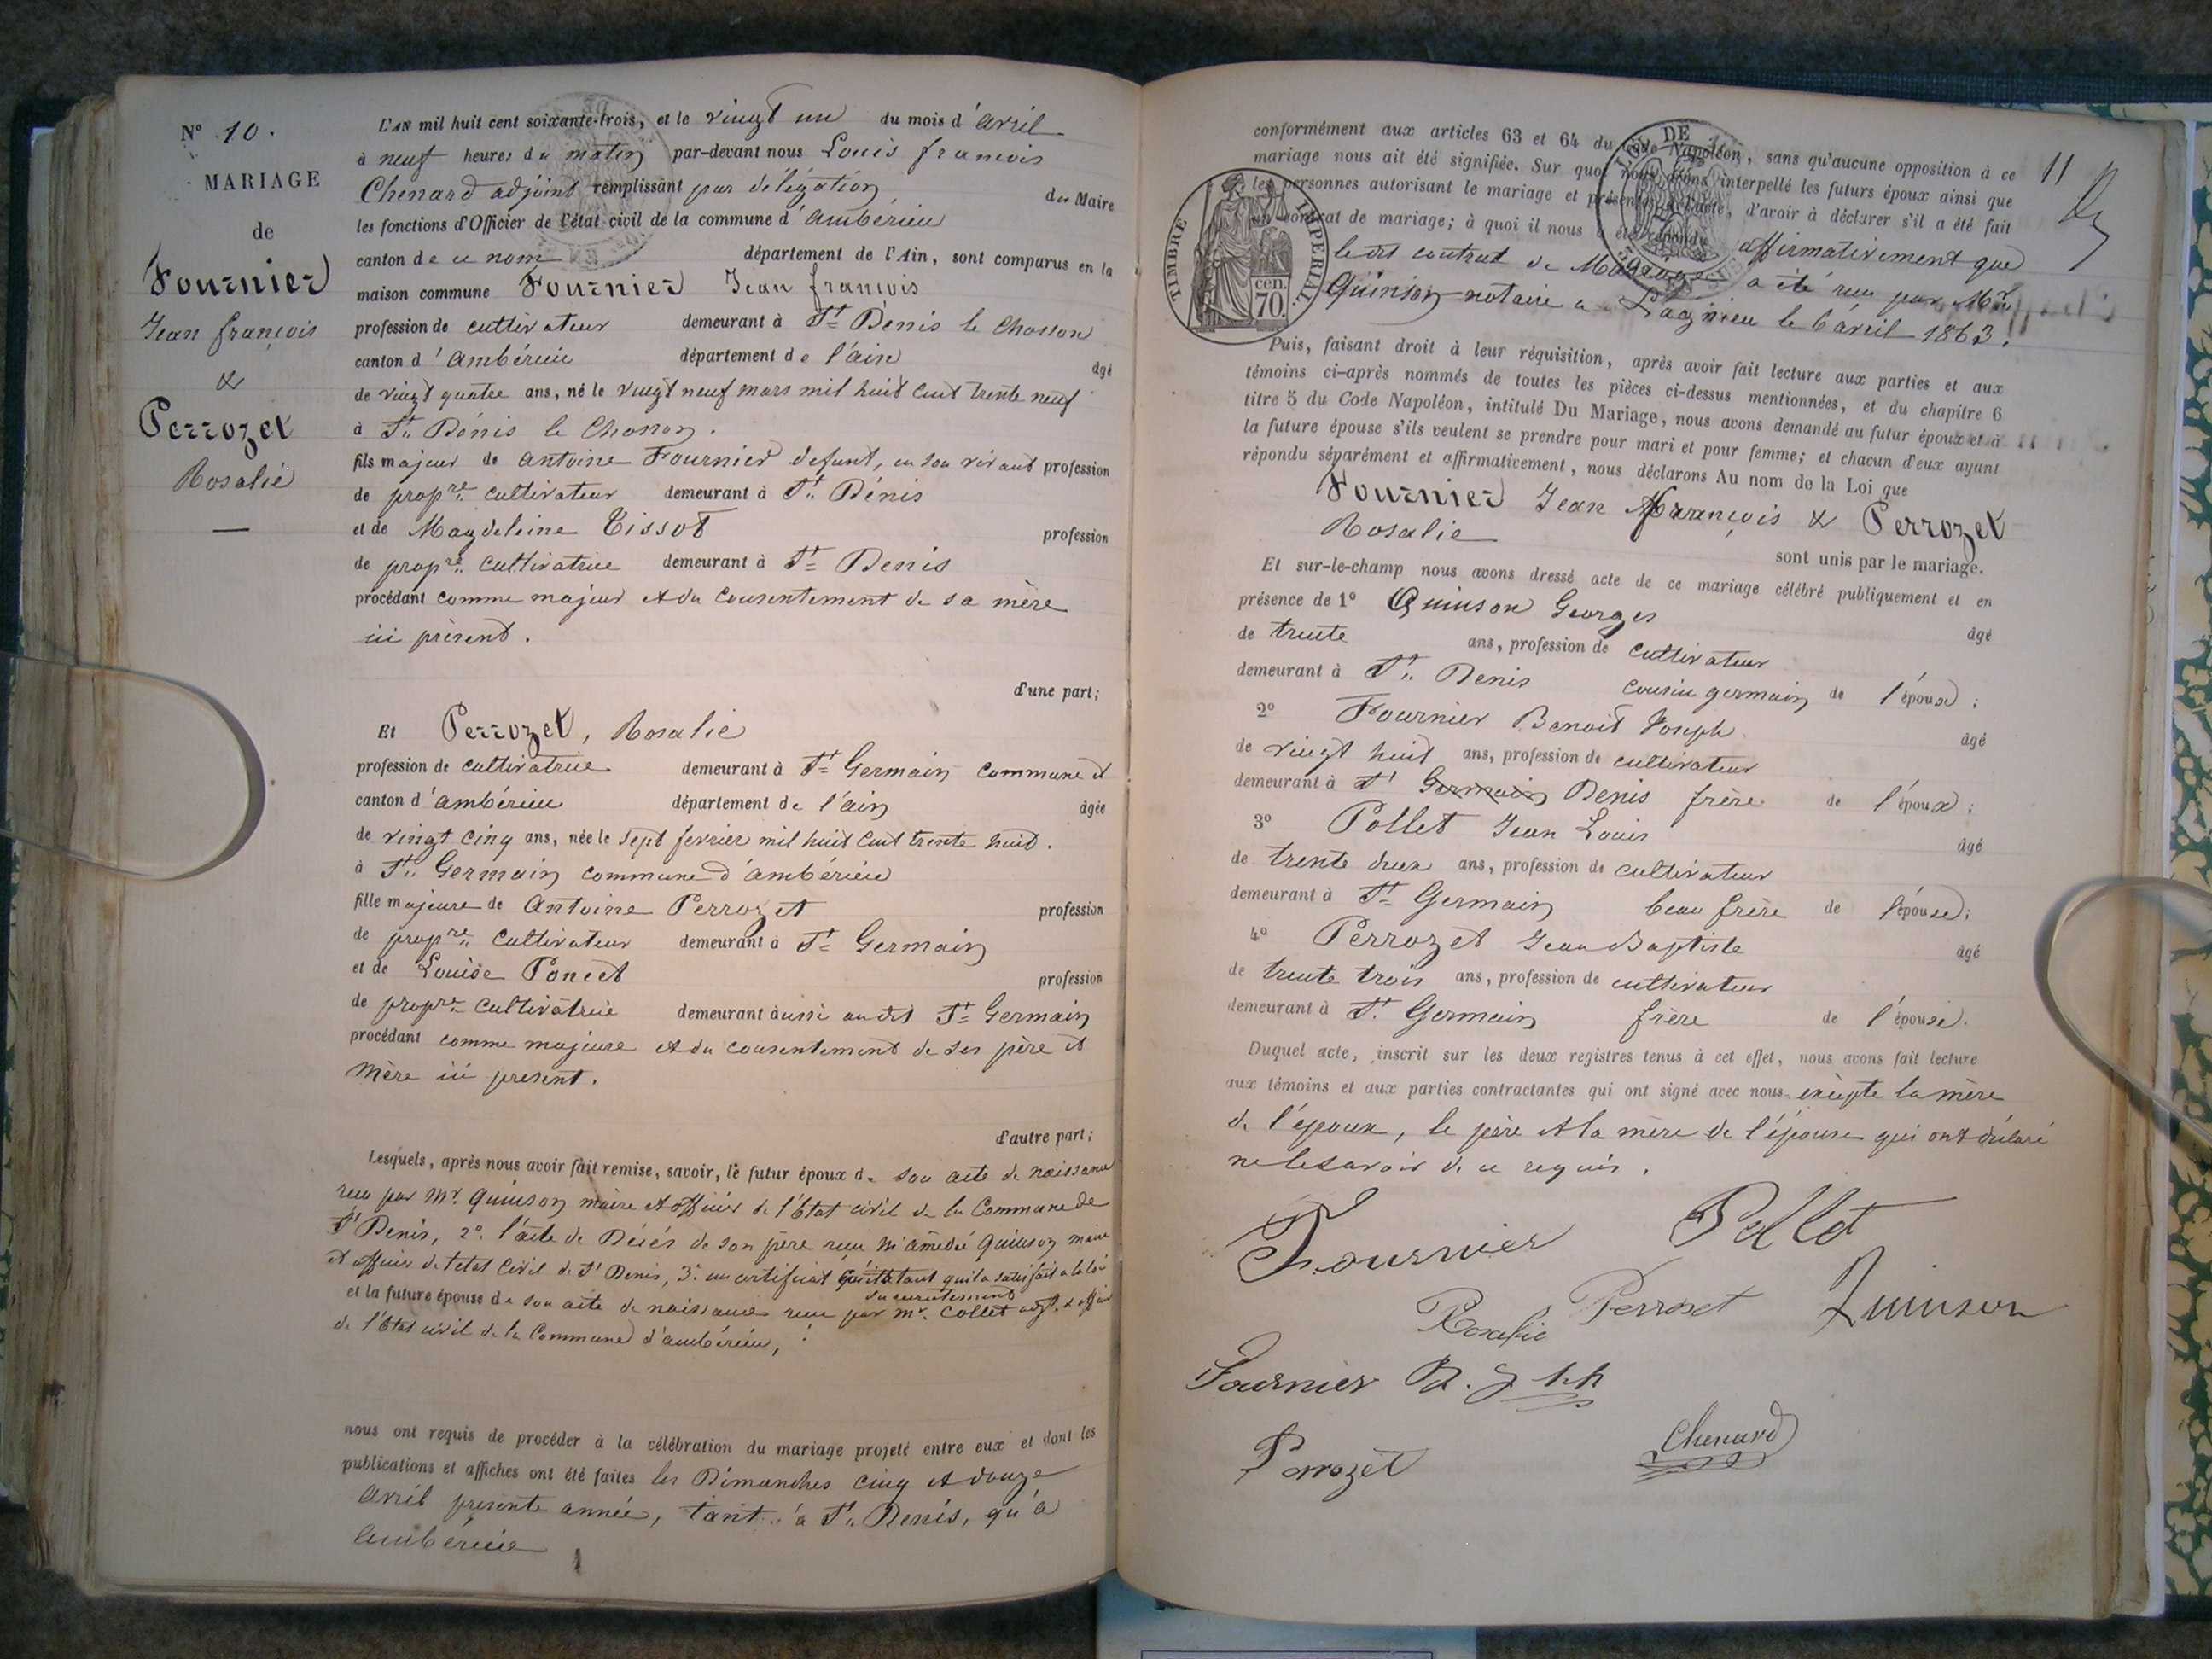 N° 10.
MARIAGE
de
Fournier
Jean françois
&
Perrozet
Rosalie
L'AN mil huit cent soixante-trois, et le vingt un du mois d'avril
à neuf heures du matin par-devant nous Louis francois
Chenard adjoint remplissant par délégation du Maire
les fonctions d'Officier de l'état civil de la commune d'ambérieu
canton de ce nom département de l'Ain, sont comparus en la
maison commune Fournier Jean francois
profession de cultivateur demeurant à St Dénis le Chosson
canton d'ambérieu département de l'ain âgé
de vingt quatre ans, né le vingt neuf mars mil huit cent trente neuf
à St. Dénis le Chosson.
fils majeur de antoine Fournier défunt, en son vivant profession
de propre. cultivateur demeurant à St. Dénis
et de Magdeleine Tissot profession
de propre. cultivatrice demeurant à St Denis
procédant comme majeur et du consentement de sa mère
ici présent.
d'une part;
Et Perrozet, Rosalie
profession de cultivatrice demeurant à St Germain commune et
canton d'ambérieu département de l'ain âgée
de vingt cinq ans, née le sept fevrier mil huit cent trente huit.
à St. Germain commune d'ambérieu
fille majeure de Antoine Perrozet profession
de propre. cultivateur demeurant à St Germain
et de Louise Poncet profession
de propre cultivatrice demeurant aussi audit St Germain
procédant comme majeure et du consentement de ses père et
Mère ici present.
d'autre part;
Lesquels, après nous avoir fait remise, savoir, le futur époux de son acte de naissance
recu par Mr. Quinson maire et officier de l'Etat civil de la Commune de
St Denis, 2°. l'acte de Décés de son père recu Mr amédé Quinson maire
et officier de l'etat Civil de St Denis, 3° un certificat constatant qu'il a satisfait a la loi
du recrutement
et la future épouse de son acte de naissance recu par Mr. Collet adjt. & officier
de l'Etat civil de la Commune d'ambérieu,
nous ont requis de procéder à la célébration du mariage projeté entre eux et dont les
publications et affiches ont été faites les Dimanches cinq et douze
avril presente année, tant à St. Denis, qu'à
ambérieu
conformément aux articles 63 et 64 du Code Napoléon, sans qu'aucune opposition à ce
mariage nous ait été signifiée. Sur quoi nous avons interpellé les futurs époux ainsi que
les personnes autorisant le mariage et présentes à l'acte, d'avoir à déclarer s'il a été fait
un contrat de mariage; à quoi il nous a été répondu affirmativement que
ledit contrat de Mariage a été recu par Mr.
Quinson notaire a Lagnieu le 6 avril 1863.
11
TIMBRE IMPÉRIAL
cen.
70.
Puis, faisant droit à leur réquisition, après avoir fait lecture aux parties et aux
témoins ci-après nommés de toutes les pièces ci-dessus mentionnées, et du chapitre 6
titre 5 du Code Napoléon, intitulé Du Mariage, nous avons demandé au futur époux et à
la future épouse s'ils veulent se prendre pour mari et pour femme; et chacun d'eux ayant
répondu séparément et affirmativement, nous déclarons Au nom de la Loi que
Fournier Jean François & Perrozet
Rosalie
sont unis par le mariage.
Et sur-le-champ nous avons dressé acte de ce mariage célébré publiquement et en
présence de 1° Quinson Georges âgé
de trente ans, profession de cultivateur
demeurant à St. Denis cousin germain de l'épouse;
2° Fournier Benoit Joseph âgé
de vingt huit ans, profession de cultivateur
demeurant à St Germain Denis frère de l'époux;
3° Pollet Jean Louis âgé
de trente deux ans, profession de cultivateur
demeurant à St Germain beau frère de l'épouse;
4° Perrozet Jean Baptiste âgé
de trente trois ans, profession de cultivateur
demeurant à St. Germain frère de l'épouse.
Duquel acte, inscrit sur les deux registres tenus à cet effet, nous avons fait lecture
aux témoins et aux parties contractantes qui ont signé avec nous excepte la mère
de l'époux, le père et la mère de l'épouse qui ont déclaré
ne le savoir de ce requis.
Fournier Pollet
Rosalie Perroset Quinson
Fournier B. J
Perrozet Chenard